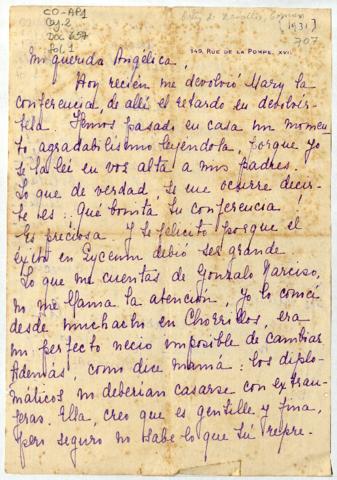 CO-AP1
Caj. 2
Doc 657
fol. 1
[1931]
707
149, RUE DE LA POMPE, XVIE
Mi querida Angélica,
Hoy recien me devolvió Mary la
conferencia, de allí el retardo en devolvér-
tela. Hemos pasado en casa un momen-
to agradabilísimo leyéndola, porque yo
se la leí en voz alta a mis padres.
Lo que de verdad, se me ocurre decir-
te es: Qué bonita tu conferencia!
Es preciosa. Y te felicito porque el
éxito en Lyceum debió ser grande
Lo que me cuentas de Gonzalo Narciso,
no me llama la atención, yo lo conocí
desde muchacho en Chorrillos, era
un perfecto necio imposible de cambiar
Además, como dice mamá: los diplo-
máticos no deberían casarse con extran-
jeras. Ella, creo que es gentille y fina,
pero seguro no sabe lo que tú repre-